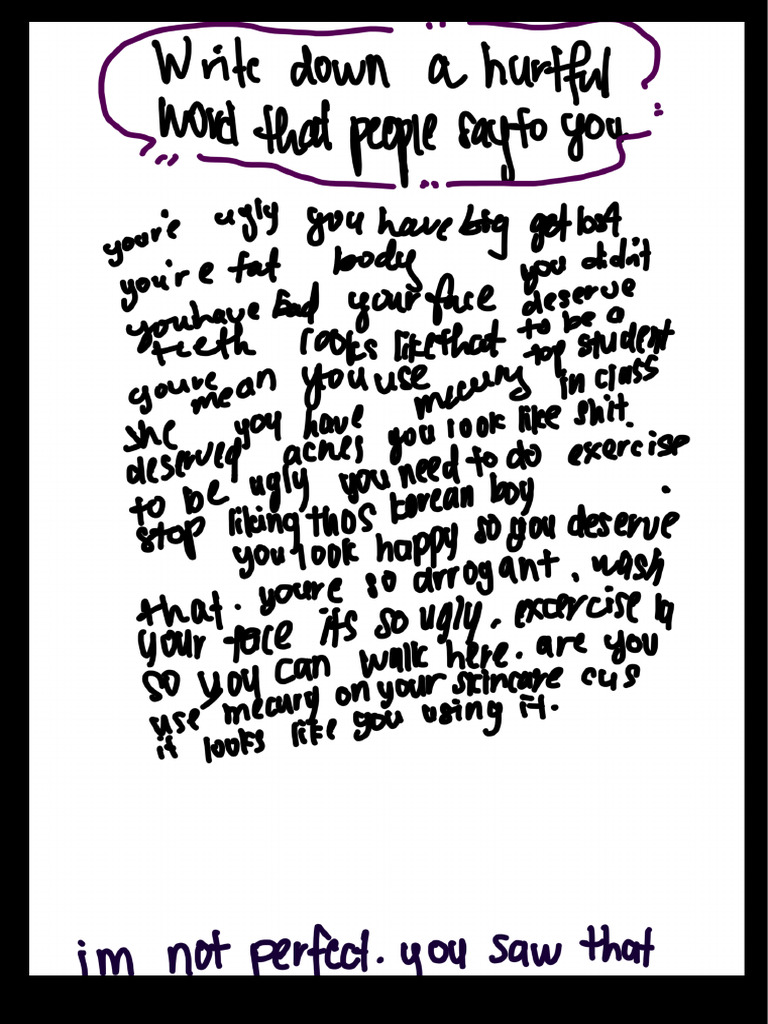 Write down a hurtful
word that people say to you
you're ugly you have big get lost
you're fat body you didn't
you have bad your face deserve
teeth looks like that to be a
youre mean you use mecury top student
she you have in class
deserved acnes you look like shit.
to be ugly you need to do exercise.
stop liking thos korean boy
you look happy so you deserve
that. youre so arrogant. wash
your face its so ugly. excercise
so you can walk here. are you
use mecury on your skincare cus
it looks like you using it.
im not perfect. you saw that